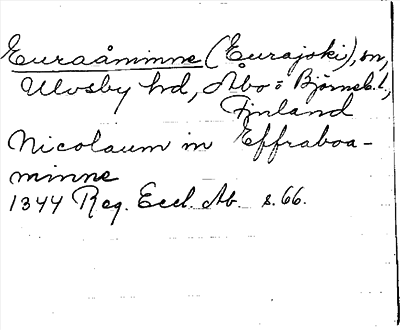 Euraåminne (Eurajoki), sn,
Ulvsby hd, Åbo = Björneb. l.,
Finland
Nicolaum in Effraboa-
minne
1344 Reg. Eccl. Ab. s. 66.